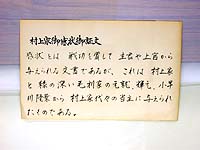 村上家御感状御証文
感状とは 戦功を賞して 主君や上官から
与えられる文書であるが、これは 村上家と
縁の深い毛利家の元就、輝元、小早
川隆景から村上家代々の当主に与えられ
たものである。